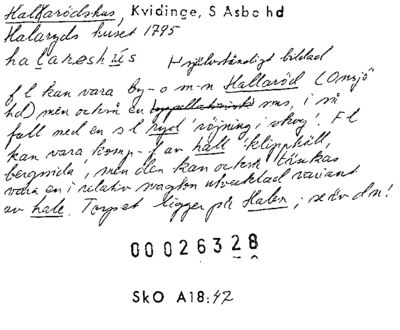 Hallarödshus, Kvidinge, S Åsbo hd
Hallaryds huset 1795
halareshūs självständigt bildad
f l kan vara by- o m-n Hallaröd (Onsjö
hd) men också en sms, i så
fall med en s l ryd 'röjning i skog'. F l
kan vara komp.-f av häll 'klipphäll,
bergsida', men den kan också tänkas
vara en i relativ utvecklad variant
av hale. Torpet ligger på Halen; se äv d n!
00026328
SkO A18:42